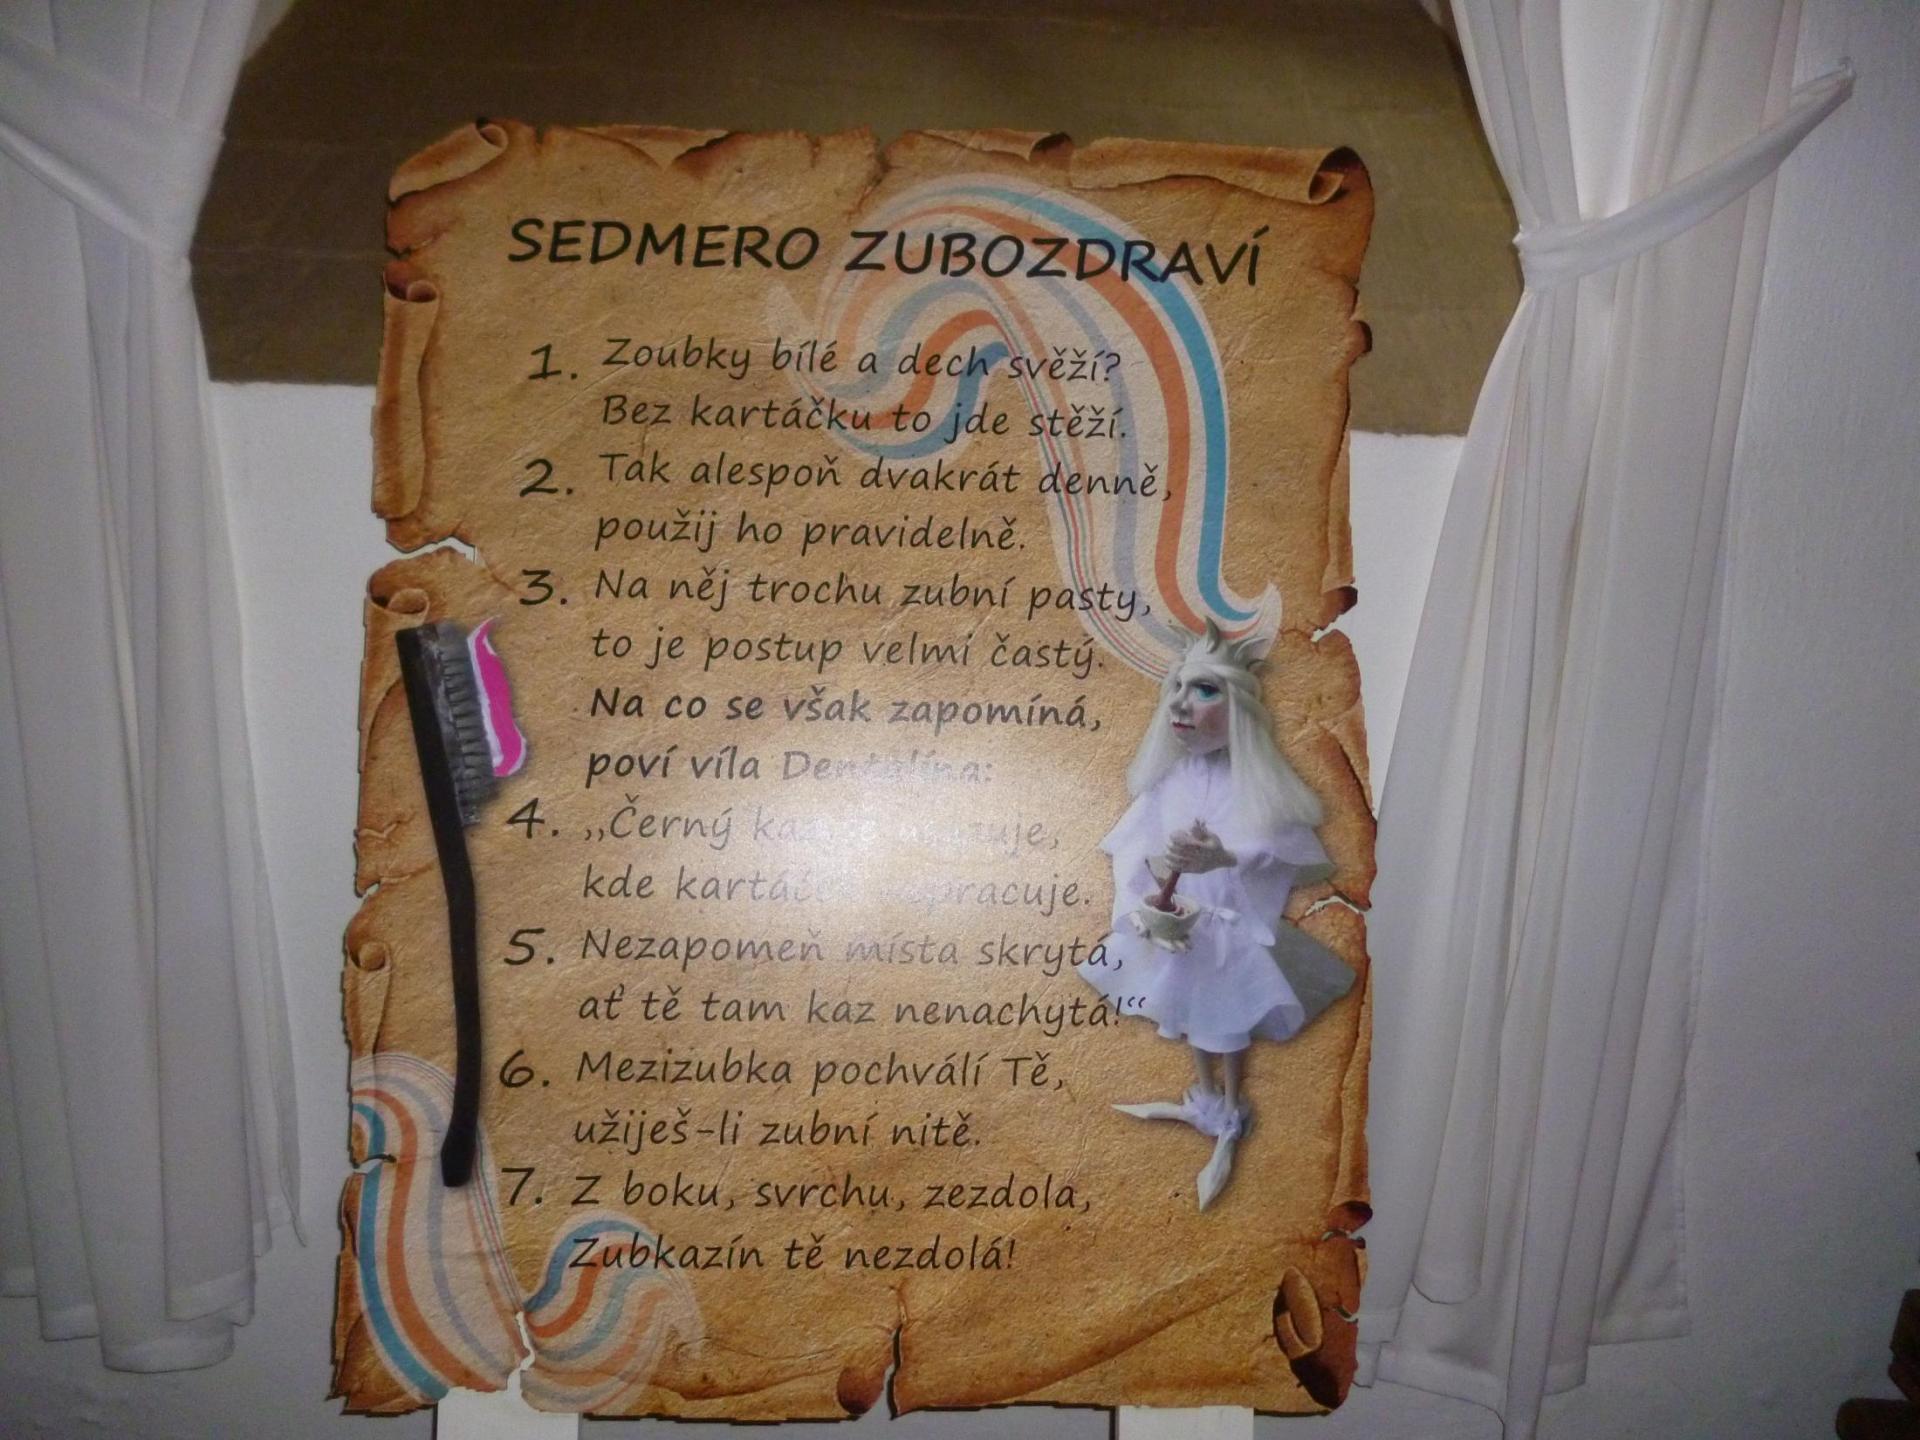 SEDMERO ZUBOZDRAVÍ
1. Zoubky bílé a dech svěží?
Bez kartáčku to jde stěží.
2. Tak alespoň dvakrát denně,
použij ho pravidelně.
3. Na něj trochu zubní pasty,
to je postup velmi častý.
Na co se však zapomíná,
poví víla Dentalína:
4. ,,Černý kaz se ukazuje,
kde kartáček nepracuje.
5. Nezapomeň místa skrytá,
ať tě tam kaz nenachytá!“
6. Mezizubka pochválí Tě,
užiješ-li zubní nitě.
7. Z boku, svrchu, zezdola,
Zubkazín tě nezdolá!